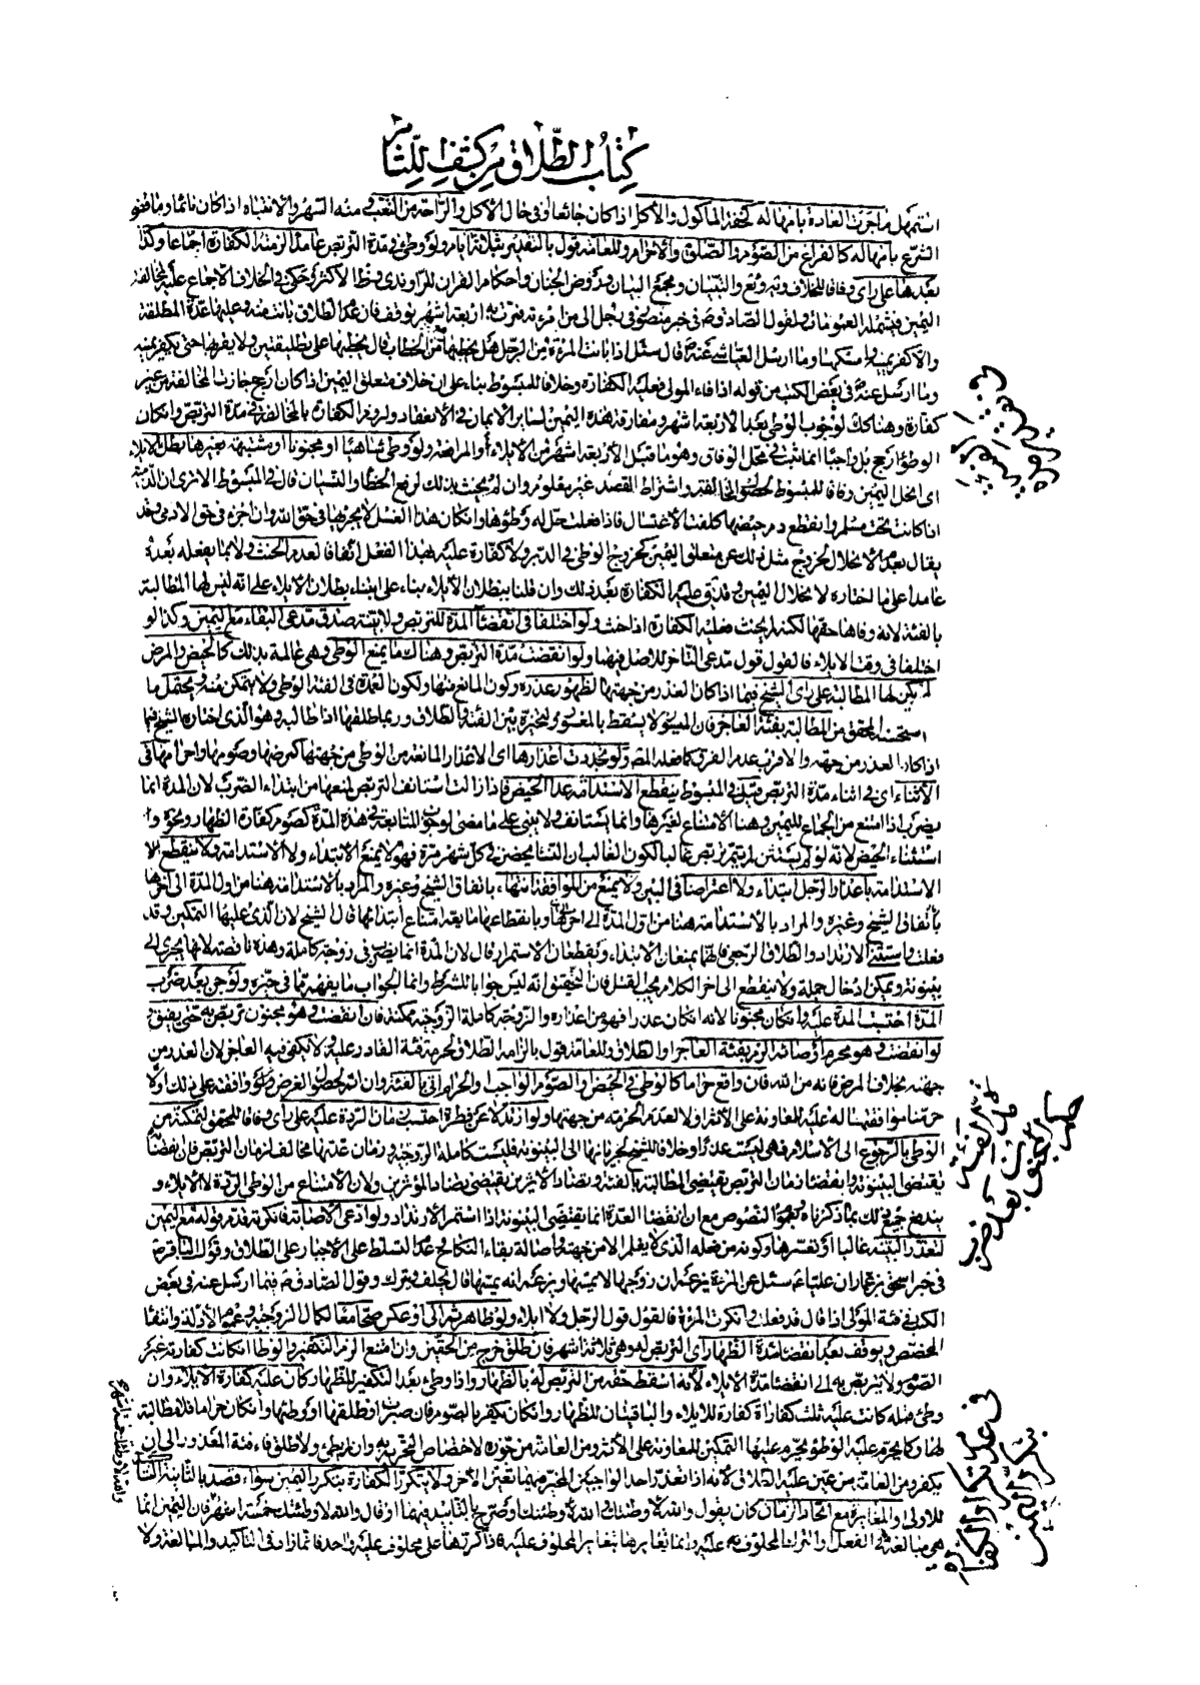 كتاب الطلاق من كشف اللثام
استمهل ما جرت العادة بامهاله كخفة الماكول والاكل اذا كان جائعا او في حال الاكل والراحة من التعب منه السهر والانتباه اذا كان نائما وما قضى
الشرع بامهاله كالفراغ من الصوم والصلوة والاحرام وللعامة قول بالتقدير بثلاثة ايام ولو وطئ في مدة التربص عامدا لزمته الكفارة اجماعا وكذا
بعدها على راى وفاقا للخلاف والتبيان ومجمع البيان وروض الجنان واحكام القران للراوندى وحكى في الخلاف الاجماع عليه لمخالفته
اليمين فيشمله العمومات ولقول الصادق في خبر منصور في رجل الى من امرءته فمرت به اربعة اشهر يوقف فان عزم الطلاق بانت منه وعليها عدة المطلقة
والا كفر يمينه وامسكها وما ارسل العياشى عنه قال سئل اذا بانت المرءة من الرجل هل يخطبها مع الخطاب قال يخطبها على تطليقتين ولا يقربها حتى يكفر يمينه
وما ارسل عنه في بعض الكتب من قوله اذا فاء المولى فعليه الكفارة وخلافا للمبسوط بناء على ان خلاف متعلق اليمين اذا كان ارجح جازت المخالفة من غير
كفارة وهنا كك لوجوب الوطى بعد الاربعة اشهر ومفارقة هذه اليمين لساير الايمان في الانعقاد ولزوم الكفارة بالمخالفة في مدة التربص وان كان
الوطؤ ارجح بل واجبا انما ثبت في محل الوفاق وهو ما قبل الاربعة اشهر من الايلاء او المرافعة ولو وطئ ساهيا او مجنونا او مشتبهة بغيرها بطل الايلاء
اى انحل اليمين وفاقا للمبسوط لحصول الفئة واشتراط القصد غير معلوم وان لم يحنث بذلك لرفع الخطأ والنسيان قال في المبسوط الا ترى ان الذمية
اذا كانت تحت مسلم وانقطع دم حيضها كلفت الاغتسال فاذا فعلت حل له وطؤها وان كان هذا الغسل لا يجزيها في حق الله وان اجزء في حق الادمى وقد
يقال بعدم الانحلال لخروج مثل ذلك عن متعلق اليمين كخروج الوطى في الدبر ولا كفارة عليه بهذا الفعل اتفاقا لعدم الحنث ولا بما يفعله بعده
عامدا على ما اختاره لانحلال اليمين وقد تق عليه الكفارة بعد ذلك وان قلنا ببطلان الايلاء بناء على ابتناء بطلان الايلاء على انه ليس لها المطالبة
بالفئة لانه وفاها حقها لكنه لم يحنث فعليه الكفارة اذا حنث ولو اختلفا في انقضاء المدة للتربص ولا بينة صدق مدعى البقاء مع اليمين وكذا لو
اختلفا في وقت الايلاء فالقول قول مدعى التاخر للاصل فيهما ولو انقضت مدة التربص وهناك ما يمنع الوطى وهي عالمة بذلك كالحيض والمرض
لم يكن لها المطالبة على راى الشيخ فيما اذا كان العذر من جهتها لظهور عذره وكون المانع منها ولكون العمدة في الفئة الوطى ولا يمكن منه ويحتمل ما
استحسنه المحقق من المطالبة بفئة العاجز فان الميسور لا يسقط بالمعسور ولتخيره بين الفئة والطلاق وربما طلقها اذا طالبه وهو الذى اختاره الشيخ فيما
اذا كان العذر من جهته والاقرب عدم الفرق كما فعله المصنف ولو تجددت اعذارها اى الاعذار المانعة من الوطى من جهتها كمرضها وصومها واحرامها في
الاثناء اى في اثناء مدة التربص قيل في المبسوط ينقطع الاستدامة عدا الحيض فاذا زالت استانف التربص لمنعها من ابتداء الضرب لان المدة انما
يضرب اذا امتنع من الجماع لليمين وهنا الامتناع لغيرها وانما يستانف ولا يبنى على ما مضى لوجوب المتابعة في هذه المدة كصوم كفارة الظهار ونحوه وا
استثناء الحيض لانه لو لم يستثن لم يتم تربص غالبا لكون الغالب ان النساء يحضن في كل شهر مرة فهو لا يمنع الابتداء ولا الاستدامة ولا ينقطع الا
الاستدامة باعذار الرجل ابتداء ولا اعتراضا في البين ولا يمنع من المرافعة انتهاء باتفاق الشيخ وغيره والمراد بالاستدامة هنا من اول المدة الى اخرها
باتفاق الشيخ وغيره والمراد بالاستدامة هنا من اول المدة الى اخرها وبانقطاعها ما يعم امتناع ابتدائها قال الشيخ لان الذى عليها التمكين وقد
فعلت واستثنى الارتداد والطلاق الرجعى فانهما يمنعان الابتداء ويقطعان الاستمرار قال لان المدة انما يضرب في زوجية كاملة وهذه ناقصة لانها يجرى الى
بينونة ويمكن ادخال جملة ولا ينقطع الى اخر الكلام فيحيز القيل فان التحقيق انه ليس جوابا للشرط وانما الجواب ما يفهم مما في حيزه ولو جن بعد ضرب
المدة احتسبت المدة عليه وان كان مجنونا لانه ان كان عذرا فهو من اعذاره والزوجية كاملة الزوجية ممكنة فان انقضت وهو مجنون تربص به حتى يفيق
لو انقضت وهو محرم او صائم الزم بفئة العاجز او الطلاق وللعامة قول بالزامه الطلاق لحرمة فئة القادر عليه ولا تكفى فيه العاجز لان العذر من
جهته بخلاف المرض فانه من الله فان واقع حراما كالوطى في الحيض والصوم الواجب والاحرام اتى بالفئة وان اثم لحصول الغرض ولو وافقته على ذلك اولا
حرمنا موافقتها له عليه للمعاونة على الاثم او لا لعدم الحرمة من جهتها ولو ارتد لا عن فطرة احتسب زمان الردة عليه على راى وفاقا للمحقق لتمكنه من
الوطى بالرجوع الى الاسلام فهى ليست عذرا وخلافا للشيخ لجريانها الى البينونة فليست كاملة الزوجية وزمان عدتها مخالف لزمان التربص فان انقضائها
يقتضى البينونة وانقضاء زمان التربص يقتضى المطالبة بالفئة وتضاد الاثرين يقتضى تضاد المؤثرين ولان الامتناع من الوطى للردة لا للايلاء و
يندفع جميع ذلك بما ذكرناه وبعموم النصوص مع ان انقضاء العدة انما يقتضى البينونة اذا استمر الارتداد ولو ادعى الاصابة فانكرت قدم قوله مع اليمين
لتعذر البينة غالبا او تعسرها وكونه من فعله الذى لا يعلم الا من جهته واصالة بقاء النكاح وعدم التسلط على الاجبار على الطلاق وقول الباقر
في خبر اسحق بن عمار ان عليا ع سئل عن المرءة يزعم ان زوجها لا يمسها ويزعم انه يمسها قال يحلف ويترك وقول الصادق فيما ارسل عنه في بعض
الكتب في فئة المولى اذا قال قد فعلت وانكرت المرءة فالقول قول الرجل ولا ايلاء ولو ظاهر ثم الى او عكس صحا معا لكمال الزوجية وعموم الادلة وانتفاء
المخصص ويوقف بعد انقضاء مدة الظهار اى التربص له وهى ثلاثة اشهر فان طلق خرج من الحقين وان امتنع الزم التكفير والوطأ ان كانت كفارته غير
الصوم ولا يتربص به الى انقضاء مدة الايلاء لانه اسقط حقه من التربص له بالظهار واذا وطئ بعد التكفير للظهار كان عليه كفارة الايلاء وان
وطئ قبله كانت عليه ثلث كفارات كفارة للايلاء والباقيتان للظهار وان كان يكفر بالصوم فان صبرت او طلقها او وطئها وان كان حراما فلا مطالبة
لها وكما يحرم عليه الوطؤ يحرم عليها التمكين للمعاونة على الاثم ومن العامة من جوزه لاختصاص التحريم به وان لم يطئ ولا طلق فاء فئة المعذور الى ان
يكفر ومن العامة من عين عليه الطلاق لانه اذا تعذر احد الواجبين المخير فيهما تعين الاخر ولا يتكرر الكفارة بتكرر اليمين سواء قصد بالثانية التاكيد
للاولى او المغايرة مع اتحاد الزمان كان يقول والله لا وطئتك والله لا وطئتك او صرح بالتابيد فيهما او قال والله لا وطئتك خمسة اشهر فان اليمين انما
هى مبالغة في الفعل او الترك المحلوف عليه وانما تغايرها بتغاير المحلوف عليه فاذا كررها على محلوف عليه واحد فانما زاد في التاكيد والمبالغة ولا
حكم المجنون بعد ضرب
في عدم تكرار الكفارة
بتكرر اليمين